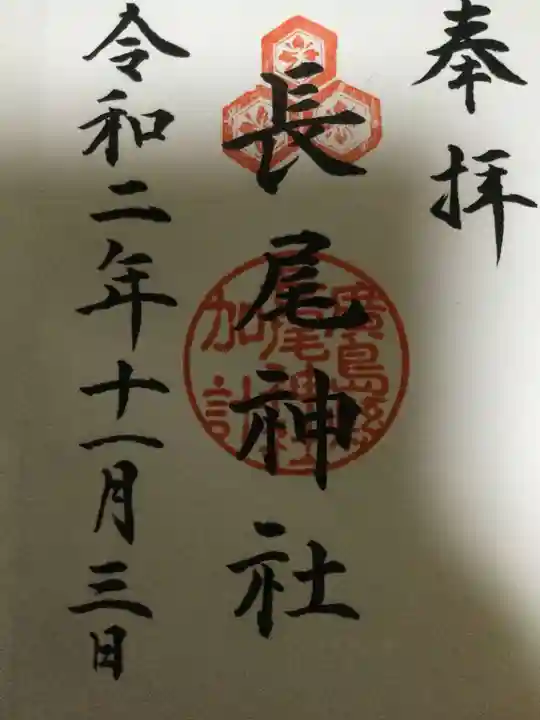 奉拝
長尾神社
廣島縣
長尾神社
加計
令和二年十一月三日